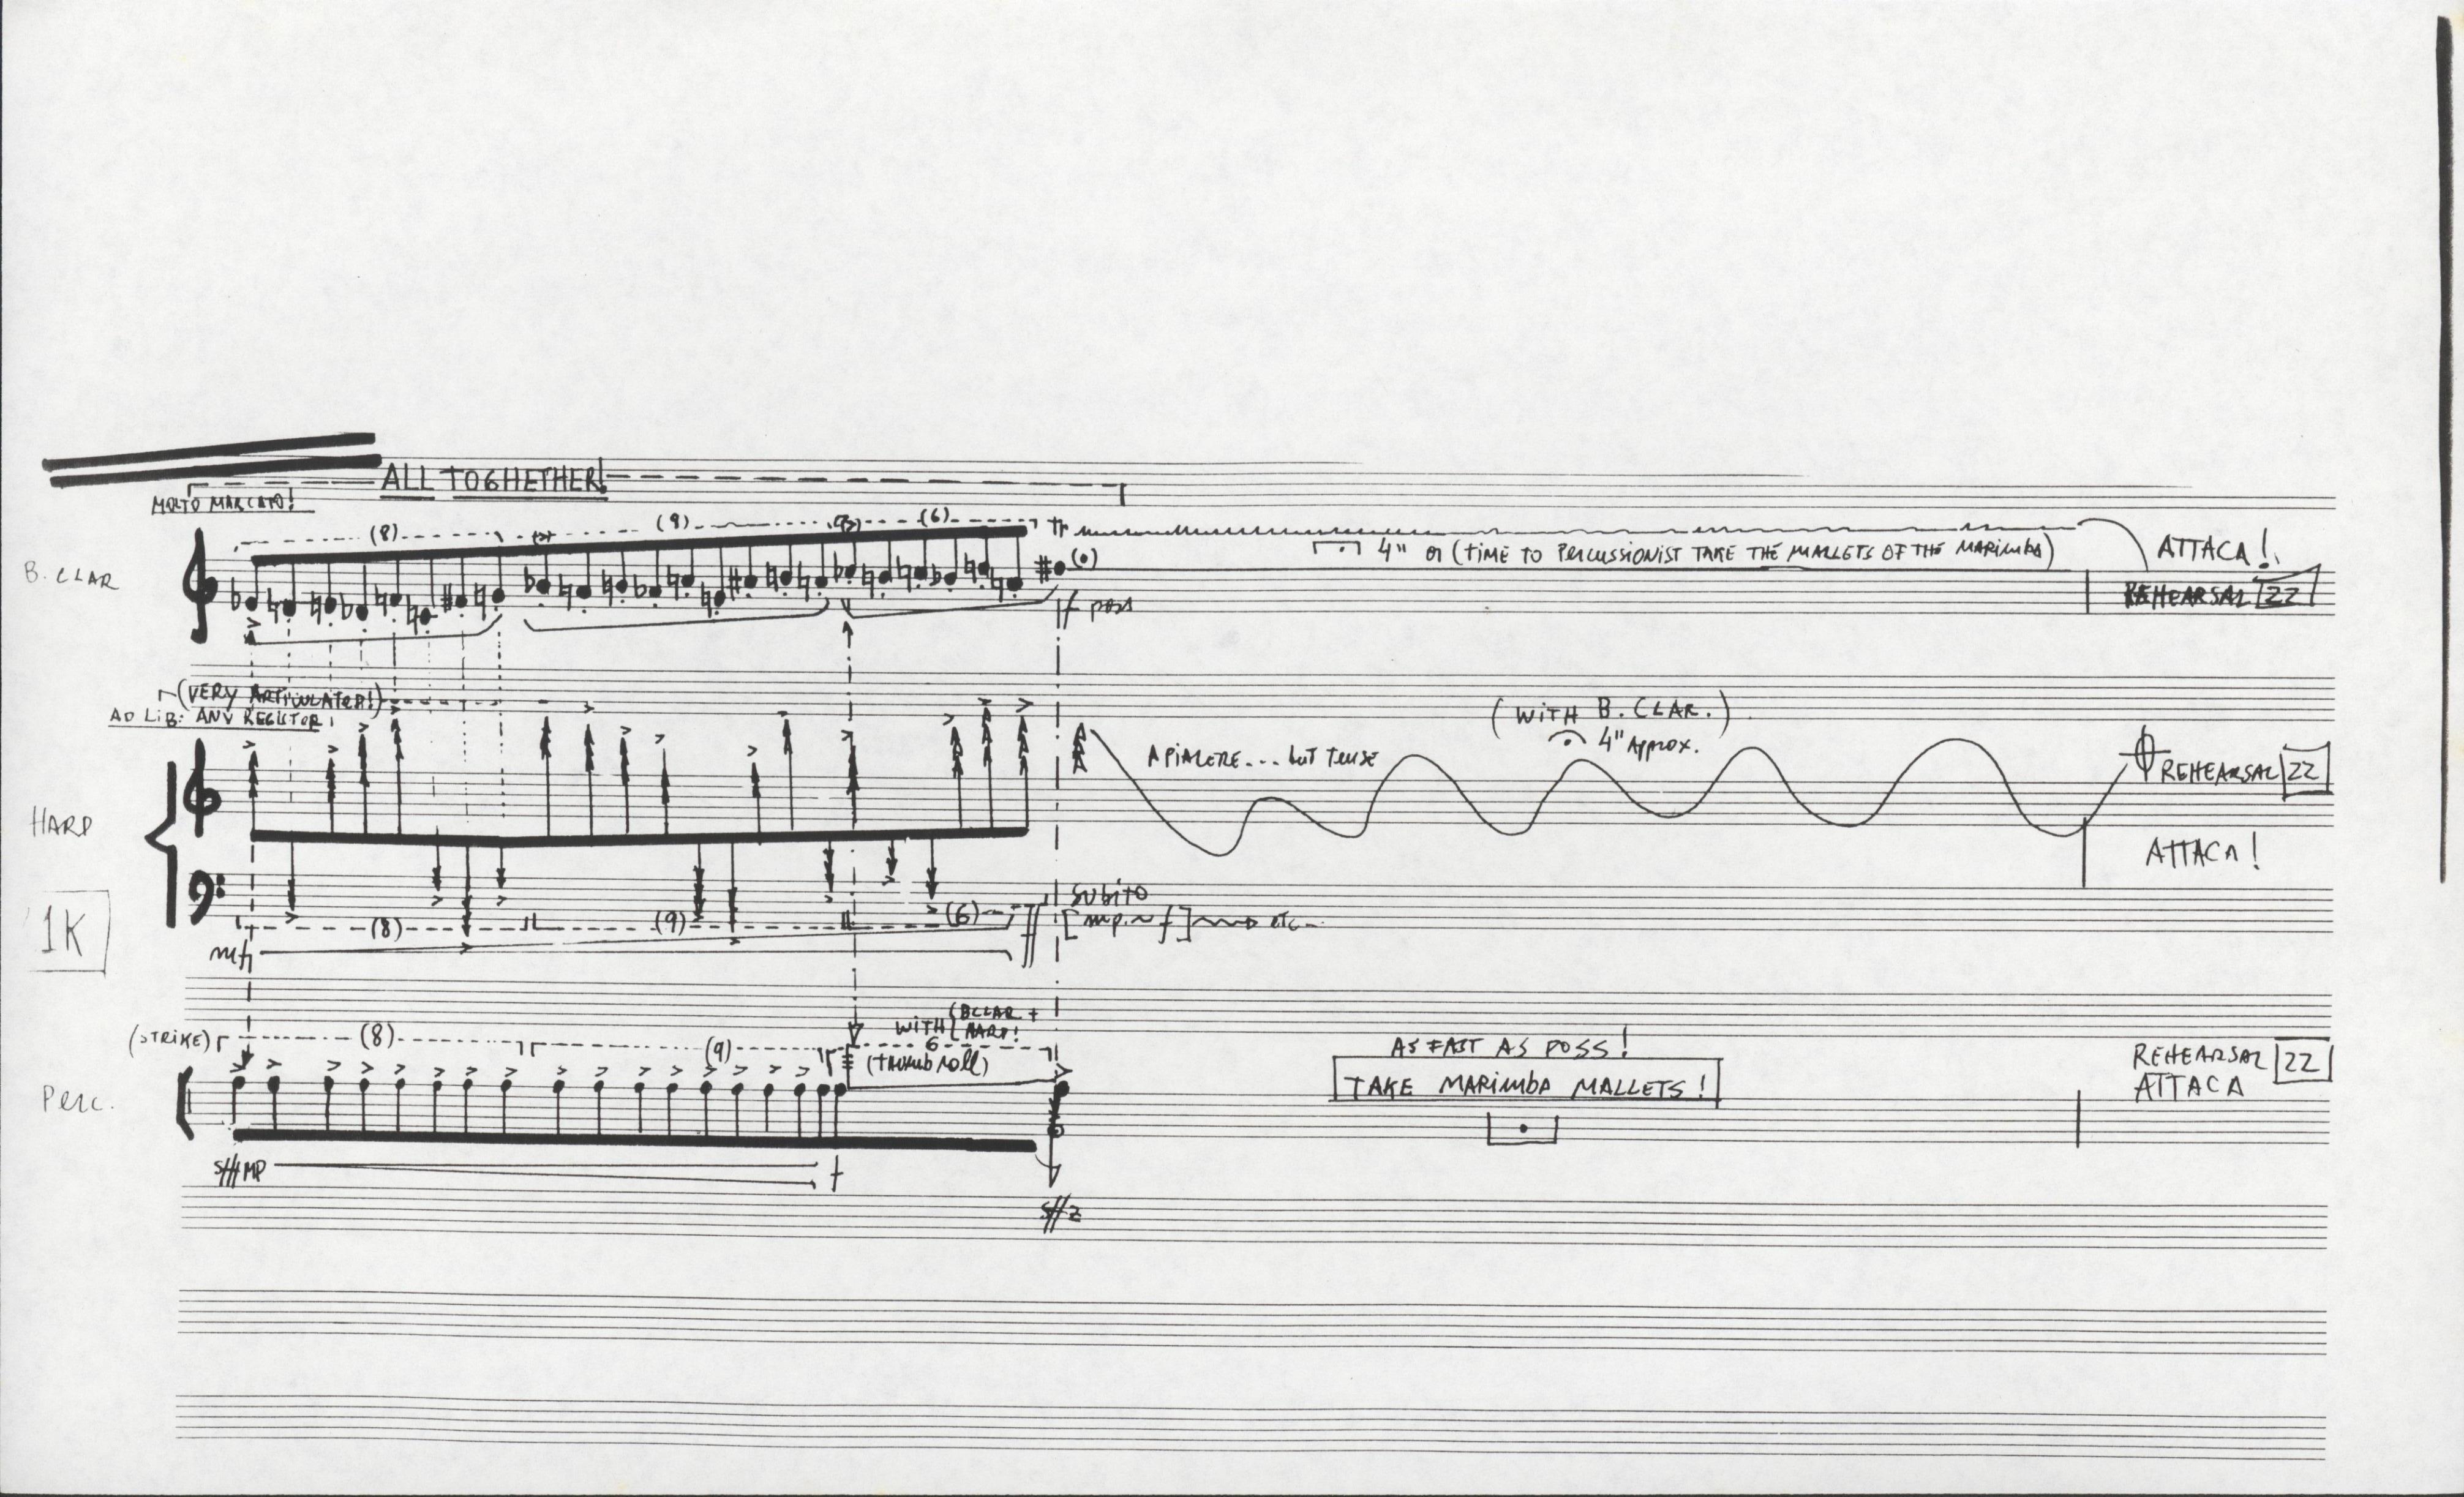 ALL TOGHETHER!
MOLTO MARCATO!
(8) (9) (6)
tr
B. CLAR
4" or (TIME TO PERCUSSIONIST TAKE THE MALLETS OF THE MARIMBA)
ATTACA!
REHEARSAL 22
f poss
(VERY ARTICULATED!)
AD LIB: ANY REGISTER!
(WITH B. CLAR.)
4" APPROX.
A PIACERE... but TENSE
REHEARSAL 22
HARP
ATTACA!
1K
SUBITO
(8) (9) (6)
[mp ~ f] etc..
mf
(STRIKE) (8) (9)
WITH (B CLAR + HARP!
6
(THUMB roll)
AS FAST AS POSS!
TAKE MARIMBA MALLETS!
REHEARSAL 22
ATTACA
Perc.
sff MP f
sffz